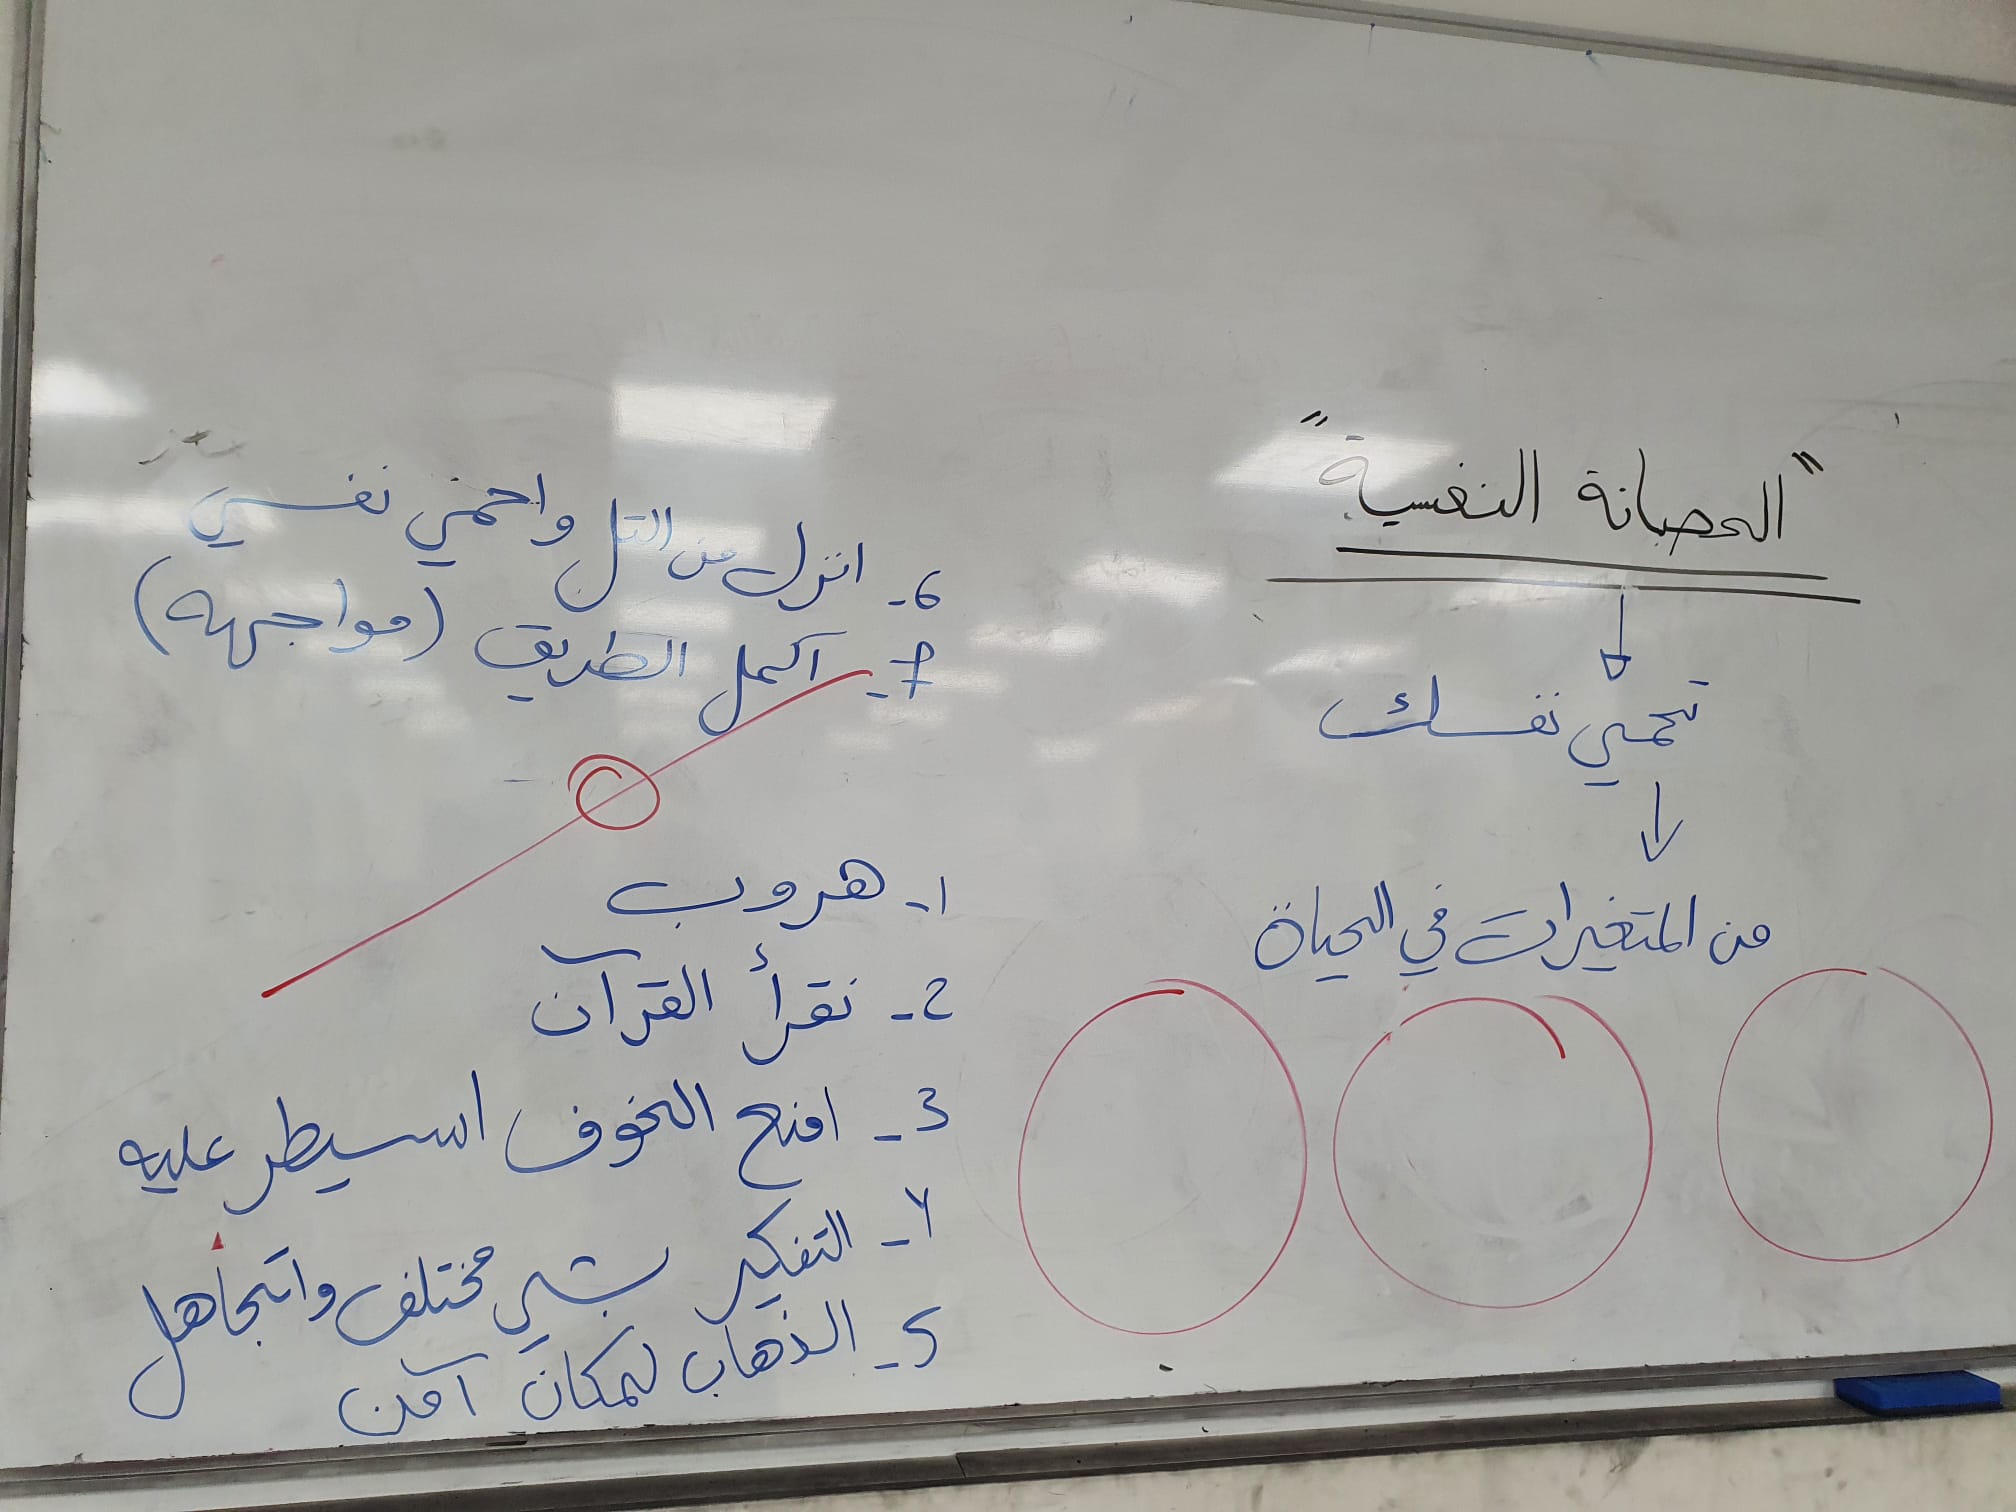 "الحصانة النفسية"
تحمي نفسك
من المتغيرات في الحياة
6- انزل من التل واحمي نفسي
7- اكمل الطريق (مواجهه)
1- هروب
2- نقرأ القرآن
3- امنع الخوف اسيطر عليه
4- التفكير بشي مختلف واتجاهل
5- الذهاب لمكان آمن